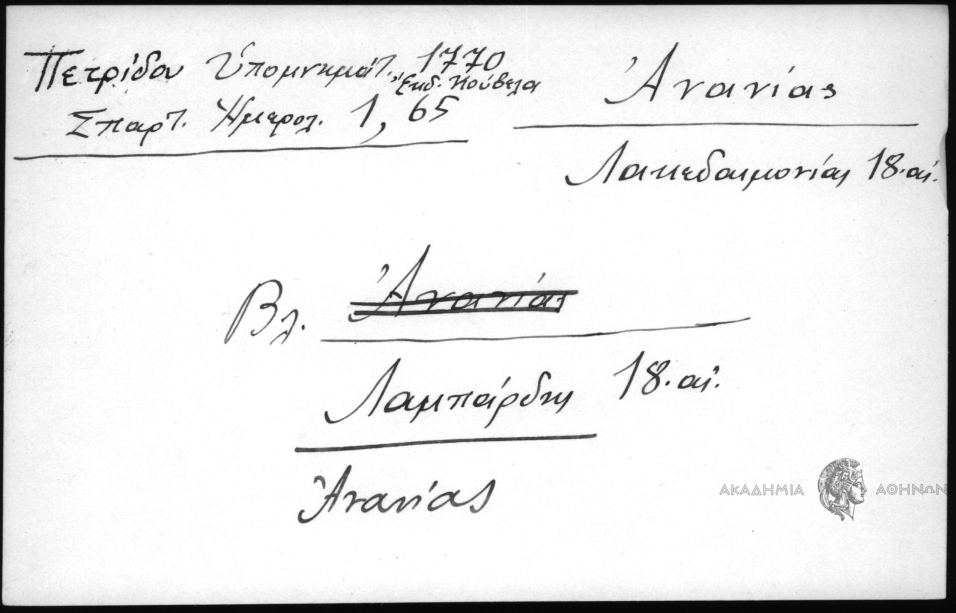 Πετρίδου Ὑπομνημάτ. 1770
Ἐκδ. Κούβελα
Σπαρτ. Ἡμερολ. 1, 65
Ἀνανίας
Λακεδαιμονίας 18. αἰ.
Βλ. Ἀνανίας
Λαμπάρδης 18. αἰ.
Ἀνανίας
ΑΚΑΔΗΜΙΑ ΑΘΗΝΩΝ